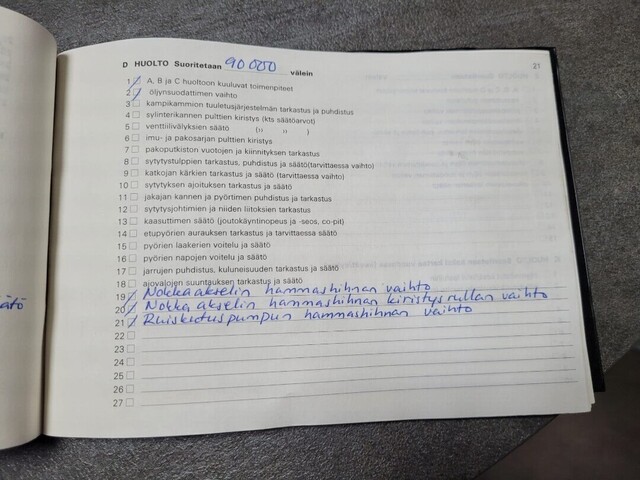 D HUOLTO Suoritetaan 90 000 välein
21
1 A, B ja C huoltoon kuuluvat toimenpiteet
2 öljynsuodattimen vaihto
3 kampikammion tuuletusjärjestelmän tarkastus ja puhdistus
4 sylinterikannen pulttien kiristys (kts säätöarvot)
5 venttiilivälyksien säätö (ıı ıı )
6 imu- ja pakosarjan pulttien kiristys
7 pakoputkiston vuotojen ja kiinnityksen tarkastus
8 sytytystulppien tarkastus, puhdistus ja säätö(tarvittaessa vaihto)
9 katkojan kärkien tarkastus ja säätö (tarvittaessa vaihto)
10 sytytyksen ajoituksen tarkastus ja säätö
11 jakajan kannen ja pyörtimen puhdistus ja tarkastus
12 sytytysjohtimien ja niiden liitoksien tarkastus
13 kaasuttimen säätö (joutokäyntinopeus ja -seos, co-pit)
14 etupyörien aurauksen tarkastus ja tarvittaessa säätö
15 pyörien laakerien voitelu ja säätö
16 pyörien napojen voitelu ja säätö
17 jarrujen puhdistus, kuluneisuuden tarkastus ja säätö
18 ajovalojen suuntauksen tarkastus ja säätö
19 Nokka akselin hammashihnan vaihto
20 Nokka akselin hammashihnan kiristysrullan vaihto
21 Ruiskutuspumpun hammashihnan vaihto
22
23
24
25
26
27
ätö